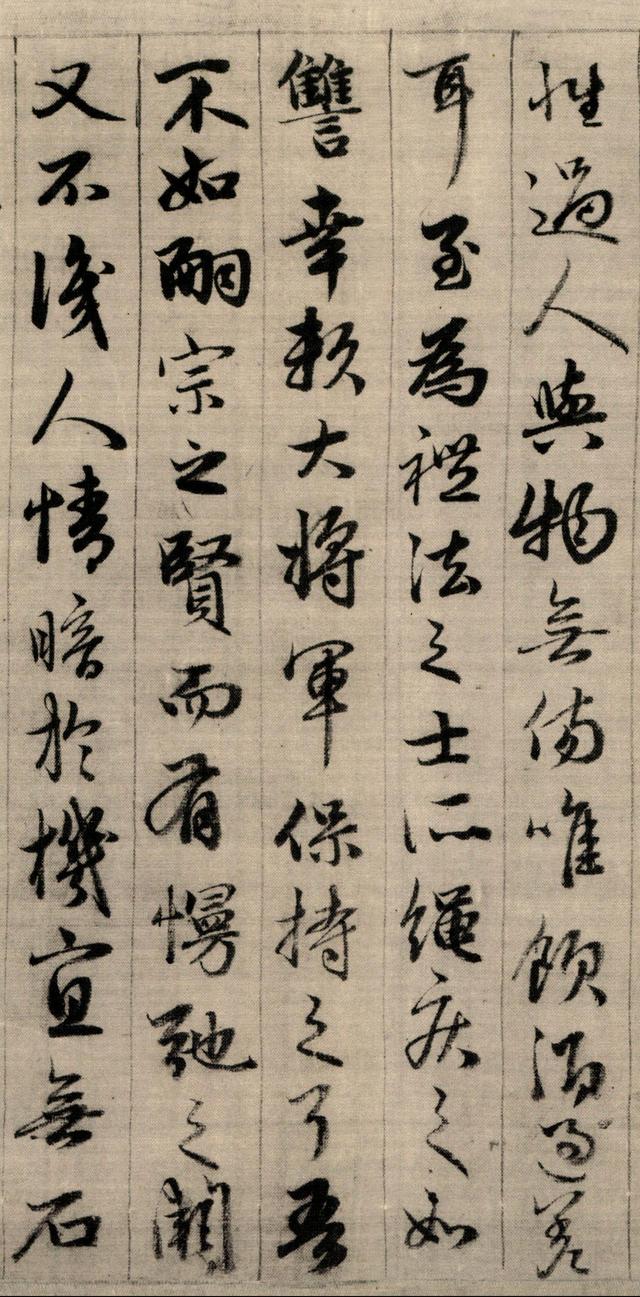 性過人與物無傷唯飲酒過差
耳至為禮法之士所繩疾之如
讐幸賴大將軍保持之耳吾
不如嗣宗之賢而有慢弛之闕
又不識人情暗於機宜無石